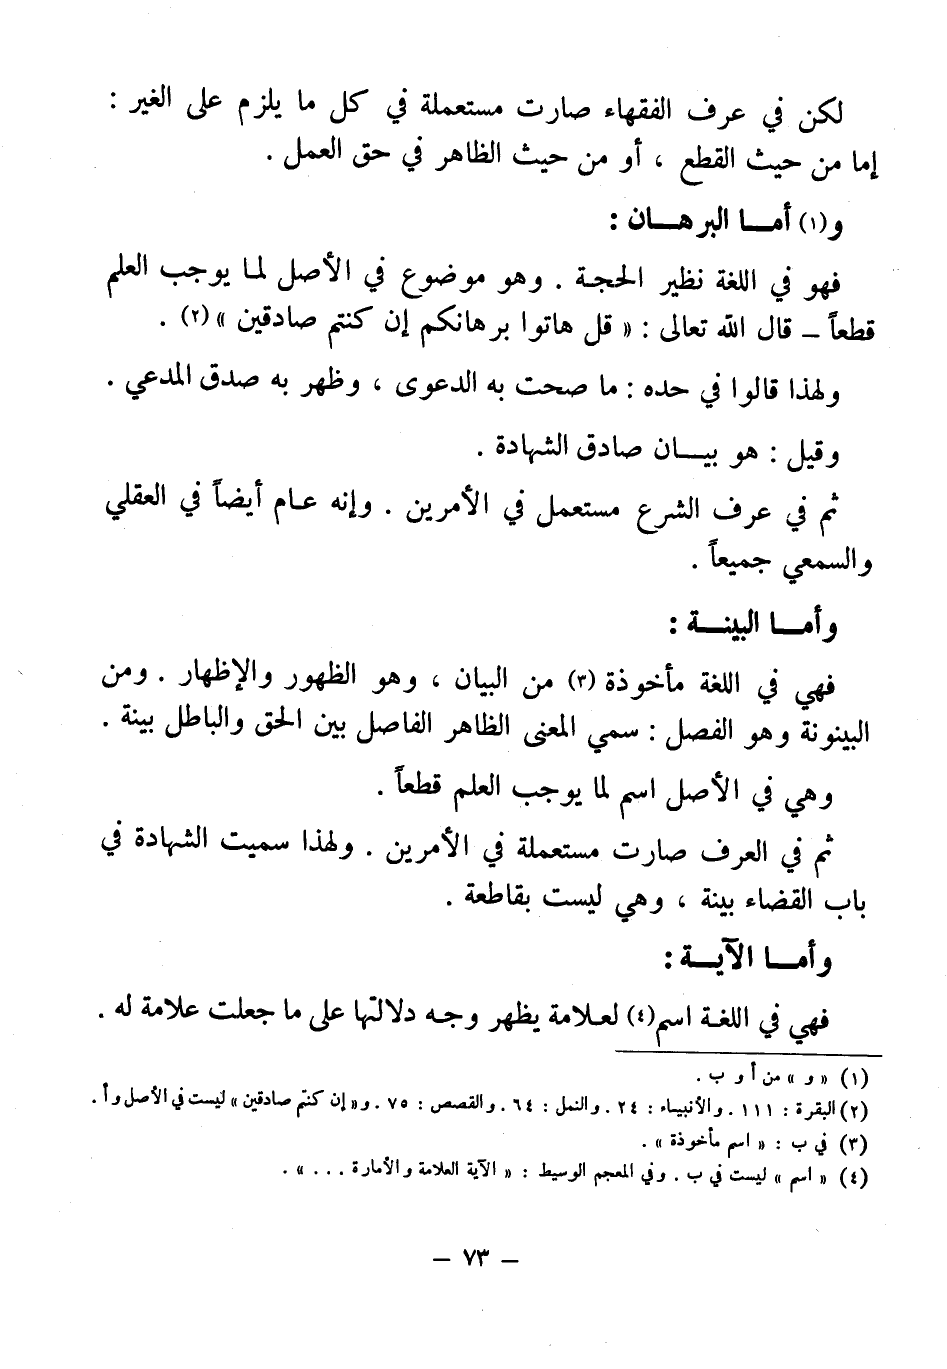 لكن في عرف الفقهاء صارت مستعملة في كل ما يلزم على الغير :
إما من حيث القطع ، أو من حيث الظاهر في حق العمل .
و(١) أمــا البرهــان :
فهو في اللغة نظير الحجة . وهو موضوع في الأصل لما يوجب العلم
قطعاً – قال الله تعالى : « قل هاتوا برهانكم إن كنتم صادقين » (٢) .
ولهذا قالوا في حده : ما صحت به الدعوى ، وظهر به صدق المدعي .
وقيل : هو بيــان صادق الشهادة .
ثم في عرف الشرع مستعمل في الأمرين . وإنه عام أيضاً في العقلي
والسمعي جميعاً .
وأمــا البينــة :
فهي في اللغة مأخوذة (٣) من البيان ، وهو الظهور والإظهار . ومن
البينونة وهو الفصل : سمي المعنى الظاهر الفاصل بين الحق والباطل بينة .
وهي في الأصل اسم لما يوجب العلم قطعاً .
ثم في العرف صارت مستعملة في الأمرين . ولهذا سميت الشهادة في
باب القضاء بينة ، وهي ليست بقاطعة .
وأمــا الآيــة :
فهي في اللغة اسم(٤) لعلامة يظهر وجه دلالتها على ما جعلت علامة له .
(١) « و » من أ و ب .
(٢) البقرة : ١١١ . والأنبياء : ٢٤ . والنمل : ٦٤ . والقصص : ٧٥ . و« إن كنتم صادقين » ليست في الأصل و أ .
(٣) في ب : « اسم مأخوذة » .
(٤) « اسم » ليست في ب . وفي المعجم الوسيط : « الآية العلامة والأمارة . . . » .
– ٧٣ –